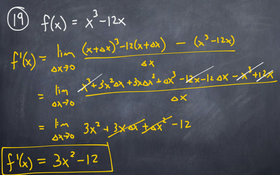 19 f(x) = x³-12x
f'(x) = lim Δx→0 (x+Δx)³-12(x+Δx) - (x³-12x) / Δx
= lim Δx→0 x³+3x²Δx+3xΔx²+Δx³-12x-12Δx-x³+12x / Δx
= lim Δx→0 3x²+3xΔx+Δx²-12
f'(x) = 3x²-12